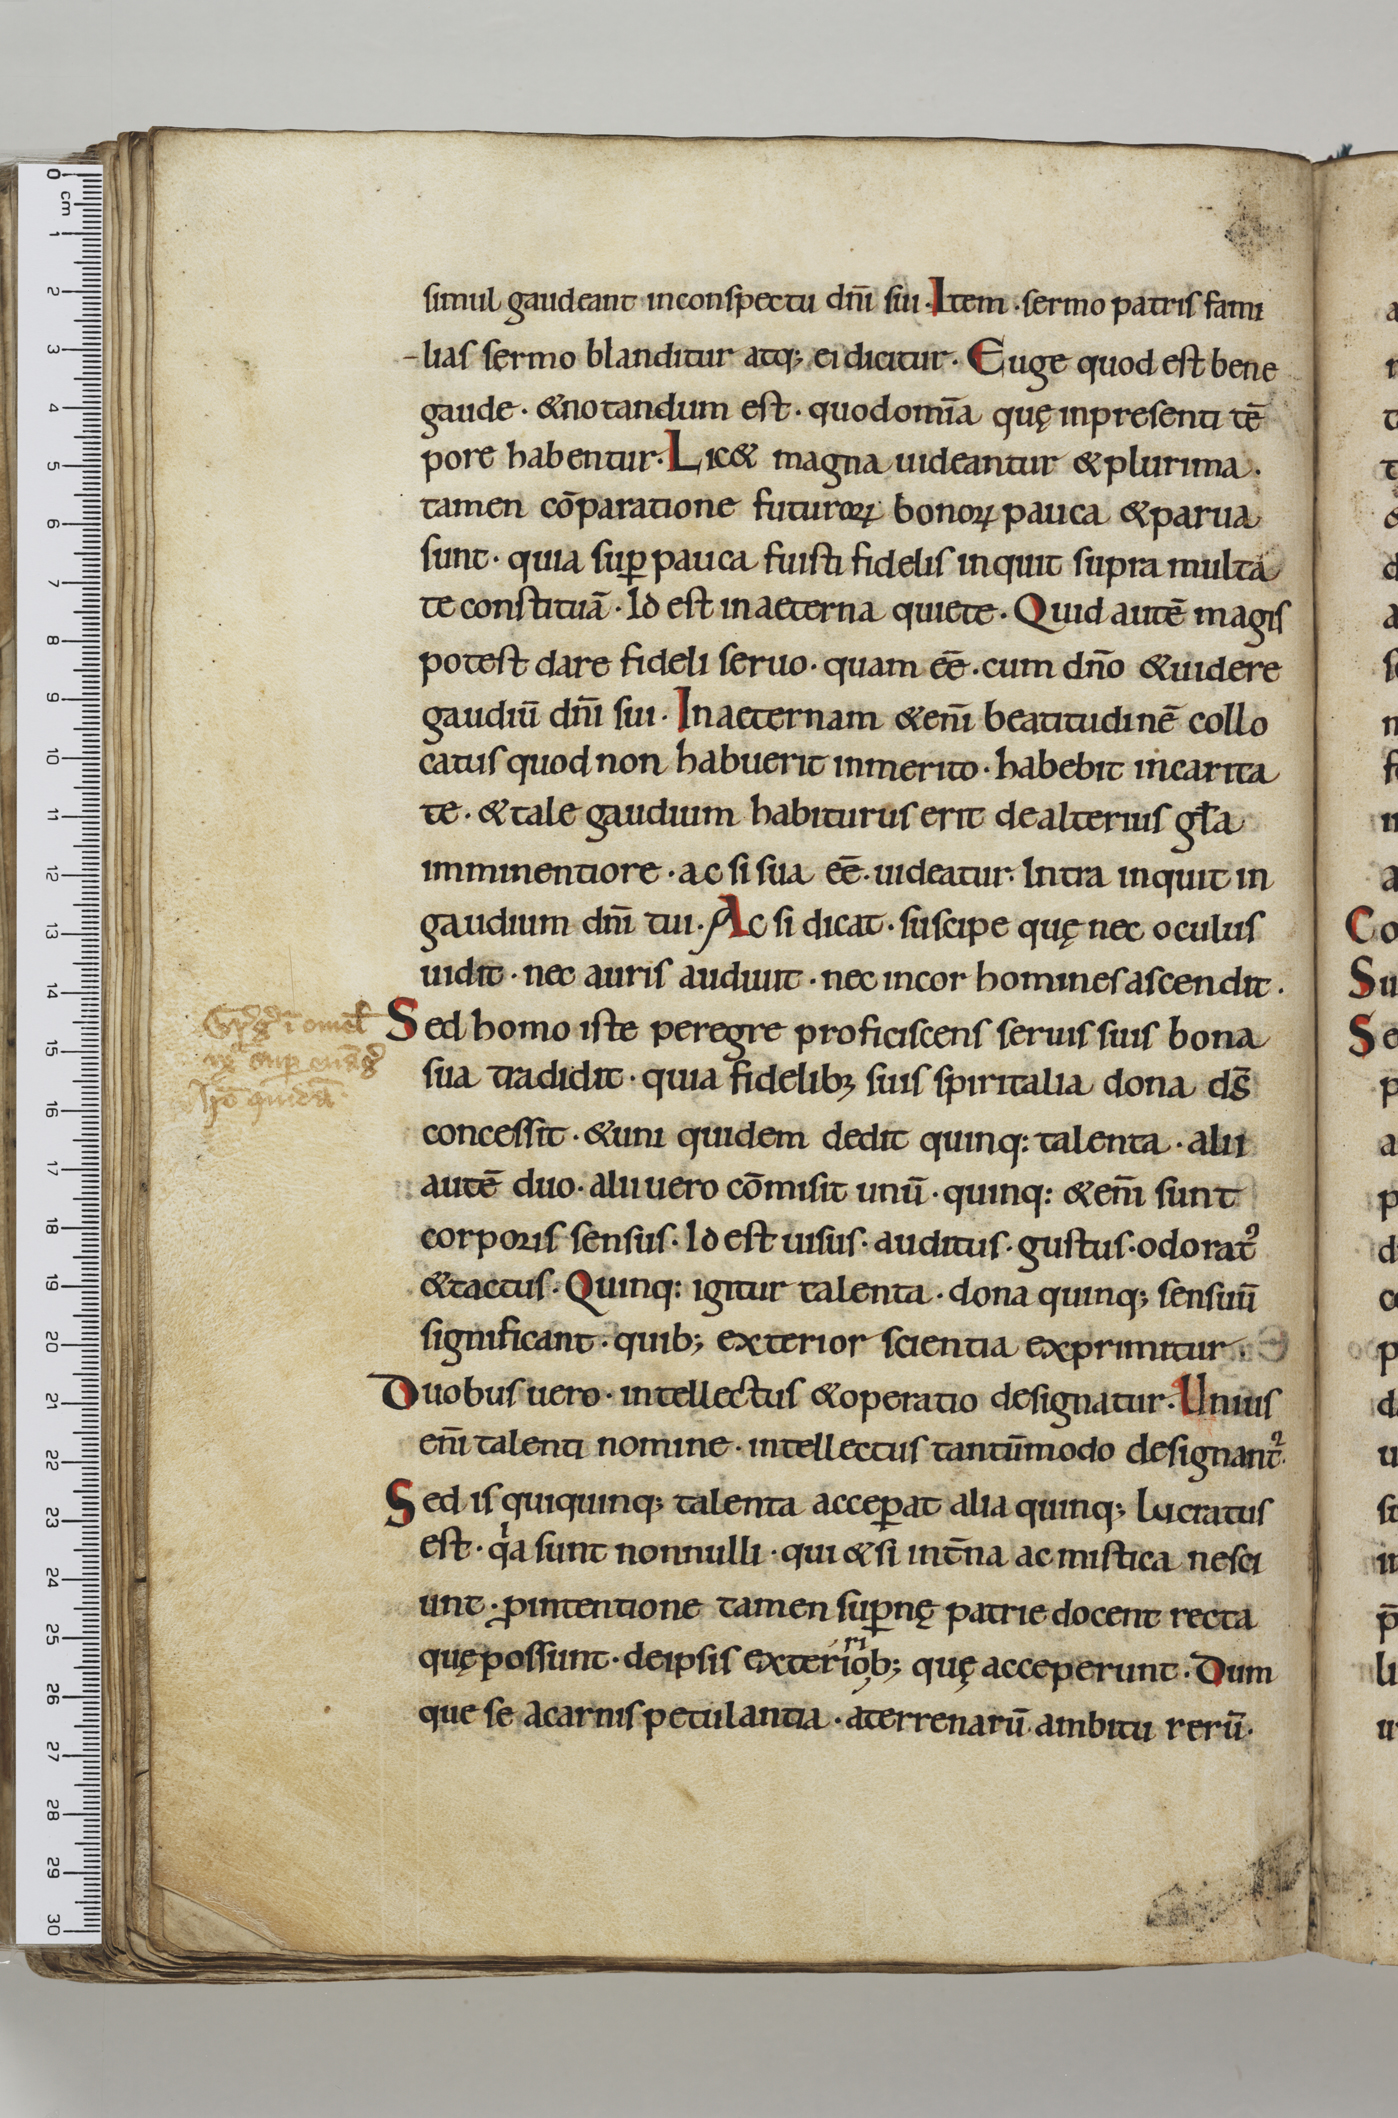 simul gaudeant inconspectu dñi sui. Item. sermo patris fami
-lias sermo blanditur atq; ei dicitur. Euge quod est bene
gaude. &notandum est. quodomīa quę inpresenti tē
pore habentur. Lic& magna uideantur &plurima.
tamen cōparatione futuroꝝ bonoꝝ pauca &parua
sunt. quia suꝑ pauca fuisti fidelis inquit supra multa
te constituā. Id est inaeterna quiete. Quid autē magis
potest dare fideli seruo. quam eē. cum dño &uidere
gaudiū dñi sui. Inaeternam &enī beatitudinē collo
catus quod non habuerit inmerito. habebit incarita
te. &tale gaudium habiturus erit dealterius gła
imminentiore. ac si sua eē. uideatur. Intra inquit in
gaudium dñi tui. Ac si dicat. suscipe quę nec oculus
uidit. nec auris audiuit. nec incor homines ascendit.
Sed homo iste peregre proficiscens seruis suis bona
sua tradidit. quia fidelibꝫ suis spiritalia dona ds̄
concessit. &uni quidem dedit quinq: talenta. alii
autē duo. alii uero cōmisit unū. quinq: &enī sunt
corporis sensus. Id est uisus. auditus. gustus. odoratꝰ
&tactus. Quinq: igitur talenta. dona quinq; sensuū
significant. quib; exterior scientia exprimitur.
Duobus uero. intellectus &operatio designatur. Unius
enī talenti nomine. intellectus tantūmodo designant᷑.
Sed is quiquinq; talenta acceꝑat alia quinq; lucratus
est. qͥa sunt nonnulli. qui &si int̄na ac mistica nesci
unt. ꝓintentione tamen suꝑnę patrie docent recta
quę possunt. deipsis exteriorib; quę acceperunt. Dum
que se acarnis petulantia. aterrenarū ambitu rerū.